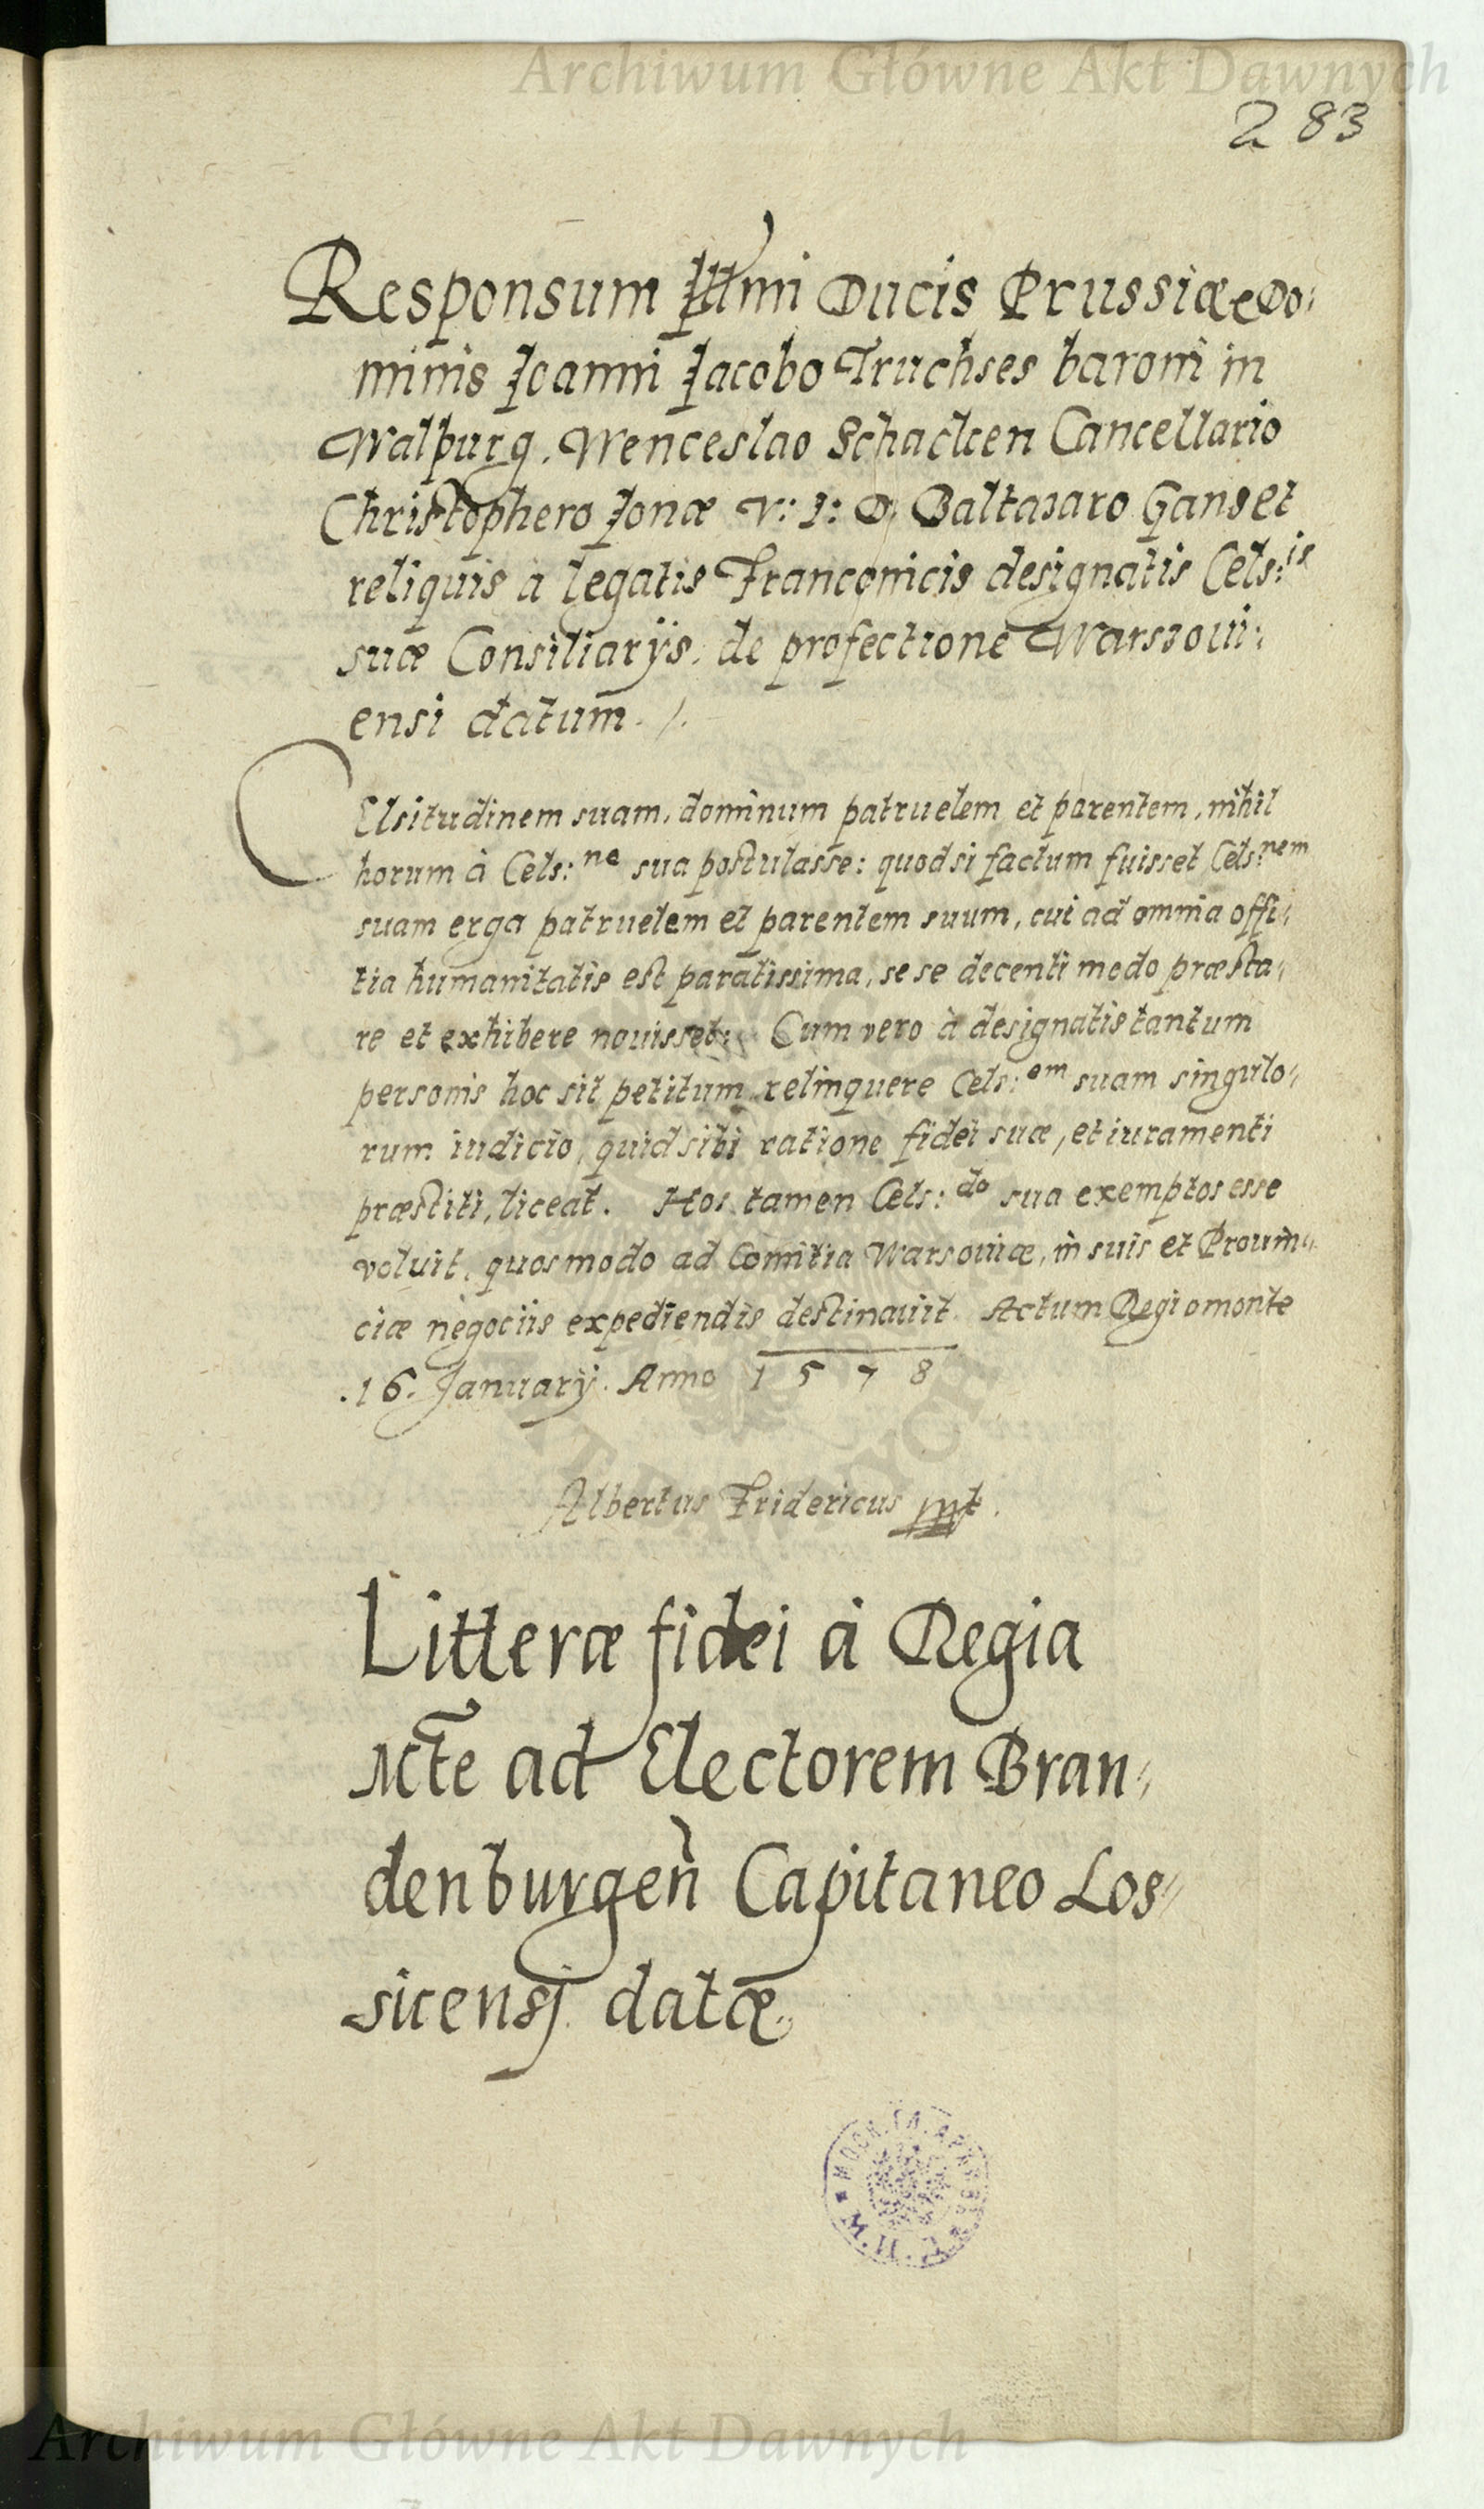 Archiwum Główne Akt Dawnych
283
Responsum Illmi Ducis Prussiæ Do:
minis Joanni Jacobo Truchses baroni in
Walpurg. Wenceslao Schacken Cancellario
Christophero Jonæ V: J: D. Baltasaro Gans et
reliquis a legatis Franconicis designatis Cels:is
suæ Consiliarÿs. de profectione Warssoui:
ensi datum.
CElsitudinem suam, dominum patruelem et parentem, nihil
horum à Cels:ne sua postulasse: quod si factum fuisset Cels:nem
suam erga patruelem et parentem suum, cui ad omnia offi:
tia humanitatis est paratissima, se se decenti modo præsta:
re et exhibere nouisset: Cum vero à designatis tantum
personis hoc sit petitum relinquere Cels:em suam singulo:
rum iudicio, quid sibi ratione fidei suæ, et iuramenti
præstiti, liceat. Hos tamen Cels:do sua exemptos esse
voluit, quos modo ad Comitia Warsouiæ, in suis et Prouin:
ciæ negociis expediendis destinauit. Actum Regiomonte
.16. Januarÿ. Anno 1578
Albertus Fridericus
Litteræ fidei à Regia
Mte ad Electorem Bran:
denburgeñ Capitaneo Los:
sicensj datæ.
Archiwum Główne Akt Dawnych